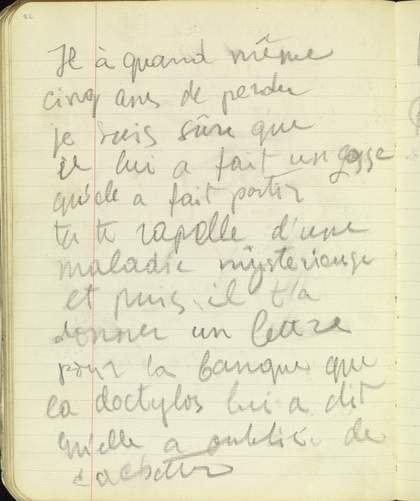 82
Il à quand même
cinq ans de perdu
je suis sûre que
il lui a fait un gosse
qu'elle a fait partir
tu te rapelle d'une
maladie mysterieuse
et puis il t'a
donner un lettre
pour la banque que
la doctylos lui a dit
qu'elle a oublié de
cacheter